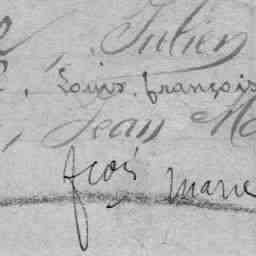 , Julien
, Louis, françois
, Jean Ma
fcois marie